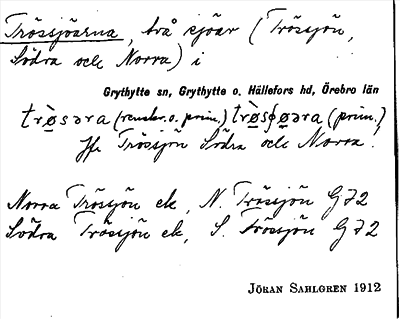 Trössjöarna, två sjöar (Trösjön,
Södra och Norra) i
Grythytte sn, Grythytte o. Hällefors hd, Örebro län
trø̀səra (renskr. o. prim.) trø̀sʃø̱əra (prim.)
Jfr Trösjön Södra och Norra.
Norra Trösjön ek, N. Trösjön G72
Södra Trösjön ek, S. Trösjön G72
JÖRAN SAHLGREN 1912